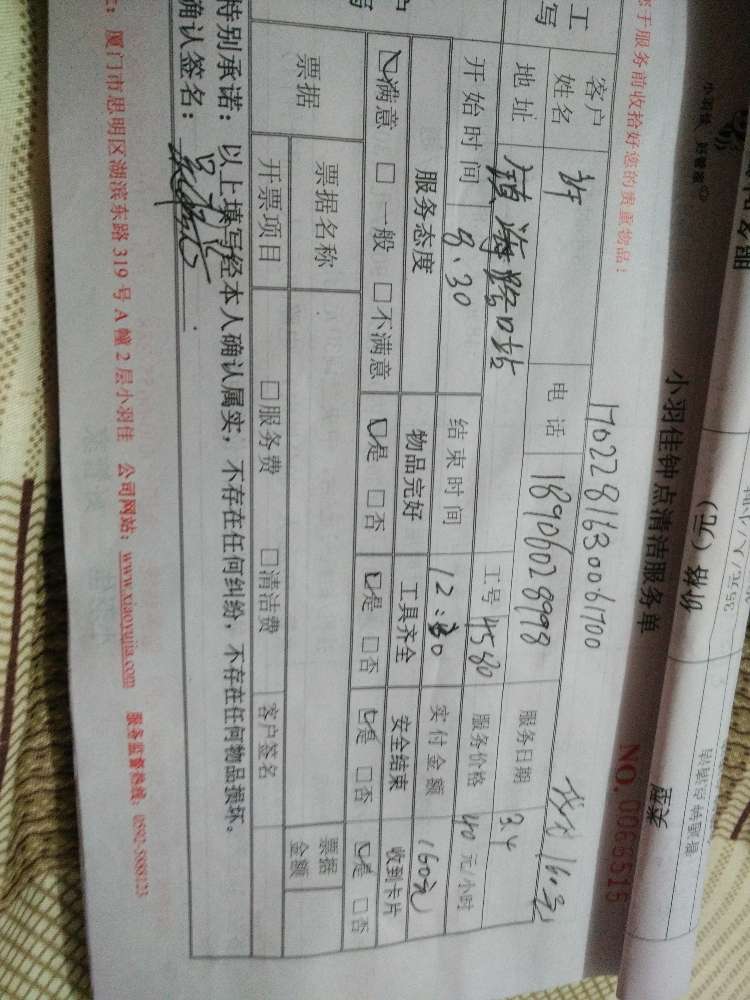 小羽佳钟点清洁服务单
NO.0066515
1702281630061700
您于服务前收拾好您的贵重物品!
客户姓名 许 电话 18906028998 服务日期 3.4
地址 镇海路口站 工号 4580 服务价格 40 元/小时
开始时间 8:30 结束时间 12:30 实付金额 160元
服务态度 物品完好 工具齐全 安全结束 收到卡片
☑满意 □一般 □不满意 ☑是 □否 ☑是 □否 ☑是 □否 ☑是 □否
票据 票据名称 票据金额
开票项目 □服务费 □清洁费 客户签名
特别承诺: 以上填写经本人确认属实, 不存在任何纠纷, 不存在任何物品损坏。
确认签名:
厦门市思明区湖滨东路 319 号 A 幢 2 层小羽佳 公司网站: www.xiaoyujia.com 服务监督热线: 0592-5888123